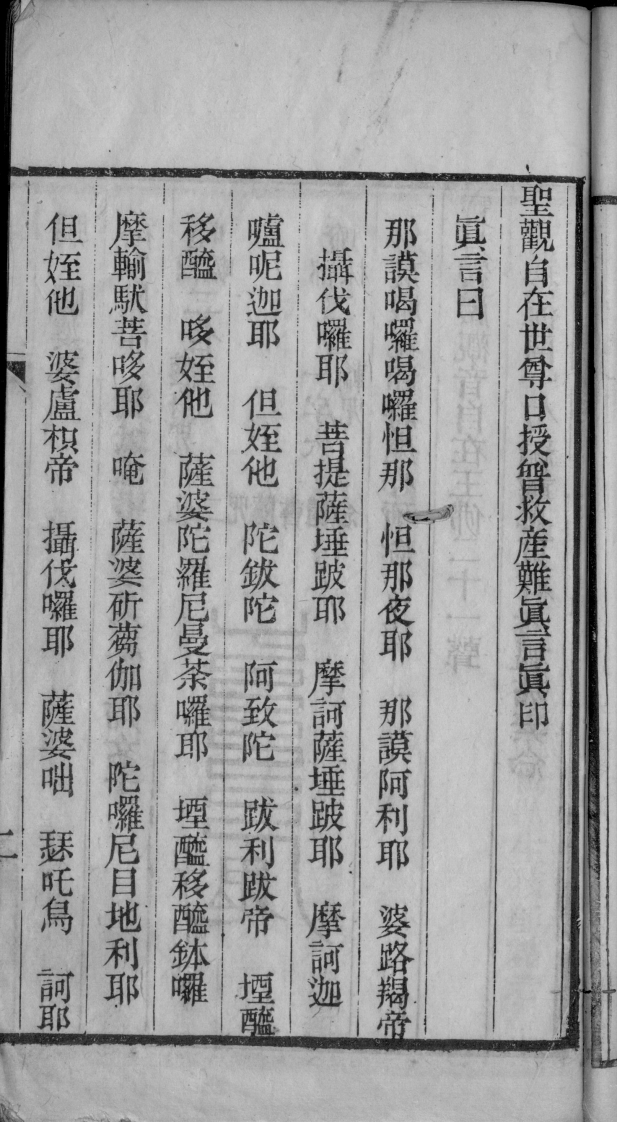 聖觀自在世尊口授普救産難眞言眞印
眞言曰
那謨喝囉喝囉怛那　怛那夜耶　那謨阿利耶　婆路羯帝
攝伐囉耶　菩提薩埵跛耶　摩訶薩埵跛耶　摩訶迦
嚧呢迦耶　但姪他　陀鈸陀　阿致陀　跋利跋帝　堙醯
移醯　哆姪他　薩婆陀羅尼曼茶囉耶　堙醯移醯鉢囉
摩輸馱菩哆耶　唵　薩婆斫蒭伽耶　陀囉尼目地利耶
但姪他　婆盧枳帝　攝伐囉耶　薩婆咄　瑟吒烏　訶耶
二